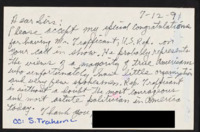 7-12-91
Dear Sirs:
Please accept my official congratulations
for having Mr. Traficant, U.S. Rep.
your call-in show. He probably represents
the views of a majority of true Americans
who unfortunately, have little organization
and Rep. Traficant
is without a doubt the most courageous
and most astute politician in America
today. Thank you
cc: J. Traficant